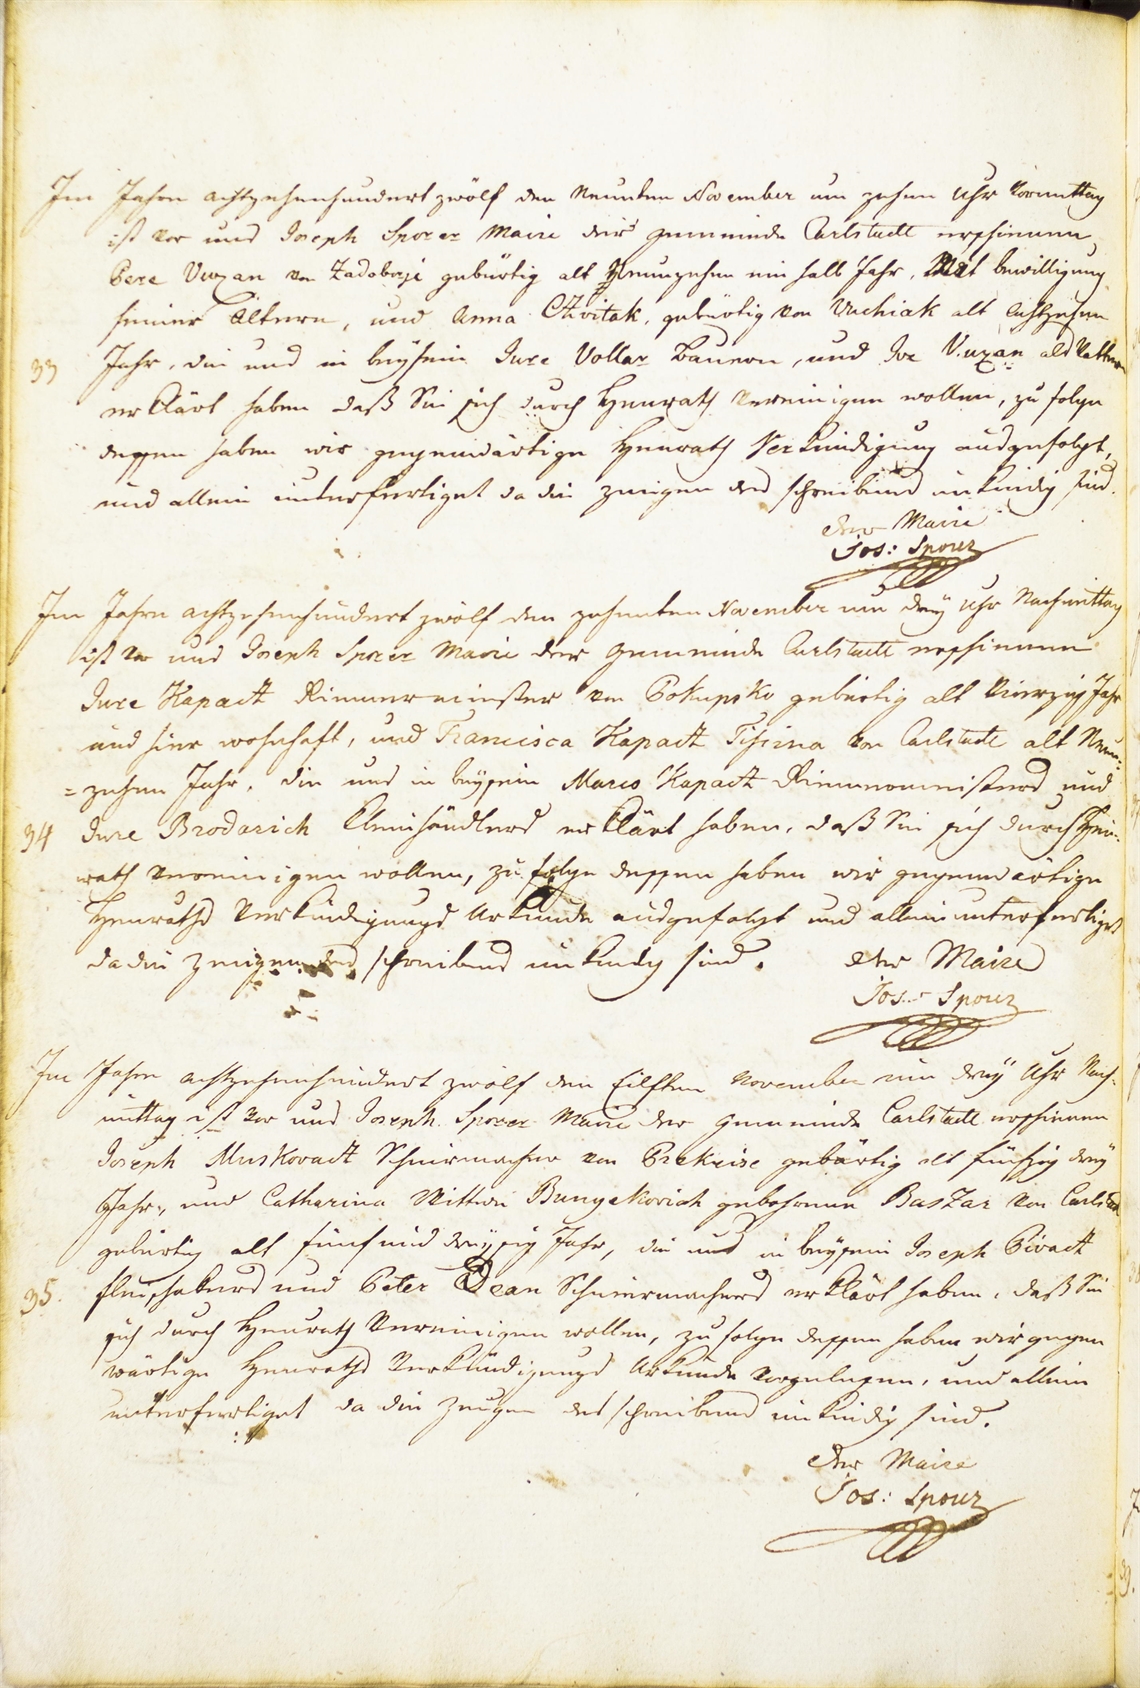 Im Jahre achtzehenhundert zwölf den Neunten November um zehen Uhr Vormittag
ist vor uns Joseph Sporer Maire der Gemeinde Carlstadt erschienen
Pere Vuxan von Zadobrje gebürtig alt Neunzehen ein halb Jahr, Mit bewilligung
seiner Ältern, und Anna Czvitak, gebürtig von Vuchiak alt Achtzehen
33 Jahr, die uns in beysein Jure Vollar Bauern, und Ive Vuxan als Vattern
erklärt haben daß Sie sich durch Heurath Vereinigen wollen, zu folge
dessen haben wir gegenwärtige Heurath Verkündigung ausgefolgt,
und allein unterfertiget da die Zeugen des schreibens unkündig sind.
der Maire
Jos: Sporer
Im Jahre achtzehenhundert zwölf den zehenten November um drey Uhr Nachmittag
ist vor uns Joseph Sporer Maire der Gemeinde Carlstadt erschienen
Jure Kapactt Riemermeister von Pokupsko gebürtig alt Vierzig Jahr
und hier wohnhaft, und Francisca Kapactt von Carlstadt alt Neun=
=zehen Jahr, die uns in beysein Marco Kapactt Riemermeisters und
34 Jure Brodarich Kleinhändlers erklärt haben, daß Sie sich durch Heu=
rath Vereinigen wollen, zu folge dessen haben wir gegenwärtige
Heuraths Verkündigungs Urkunde ausgefolgt und allein unterfertiget
da die Zeugen des schreibens unkündig sind. der Maire
Jos: Sporer
Im Jahre achtzehenhundert zwölf den Eilften November um drey Uhr Nach=
mittag ist vor uns Joseph Sporer Maire der Gemeinde Carlstadt erschienen
Joseph Muskovactt Schnirmacher von Prekrise gebürtig alt fünfzig drey
Jahr, und Catharina Wittwe Bunyekovich gebohrene Baszar von Carlstadt
gebürtig alt fünf und dreyssig Jahr, die uns in beysein Joseph Pivactt
35. und Peter Dean Schnirmachers erklärt haben, daß Sie
sich durch Heurath Vereinigen wollen, zu folge dessen haben wir gegen
wärtige Heuraths Verkündigungs Urkunde vorgelesen, und allein
unterfertiget da die Zeugen des schreibens unkündig sind.
der Maire
Jos: Sporer